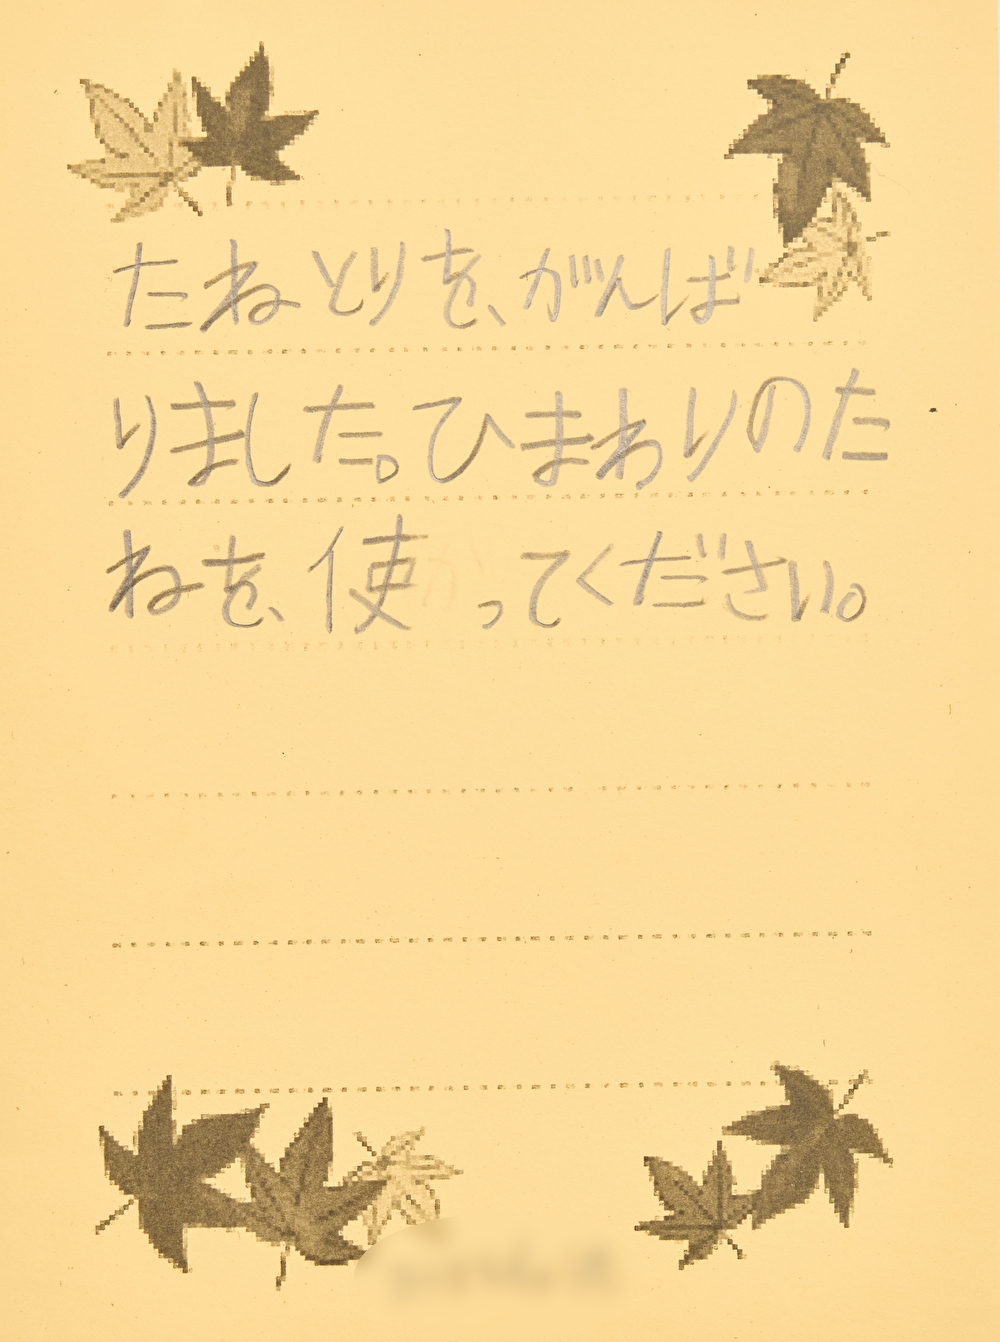 たねとりを、がんば
りました。ひまわりのた
ねを、使ってください。